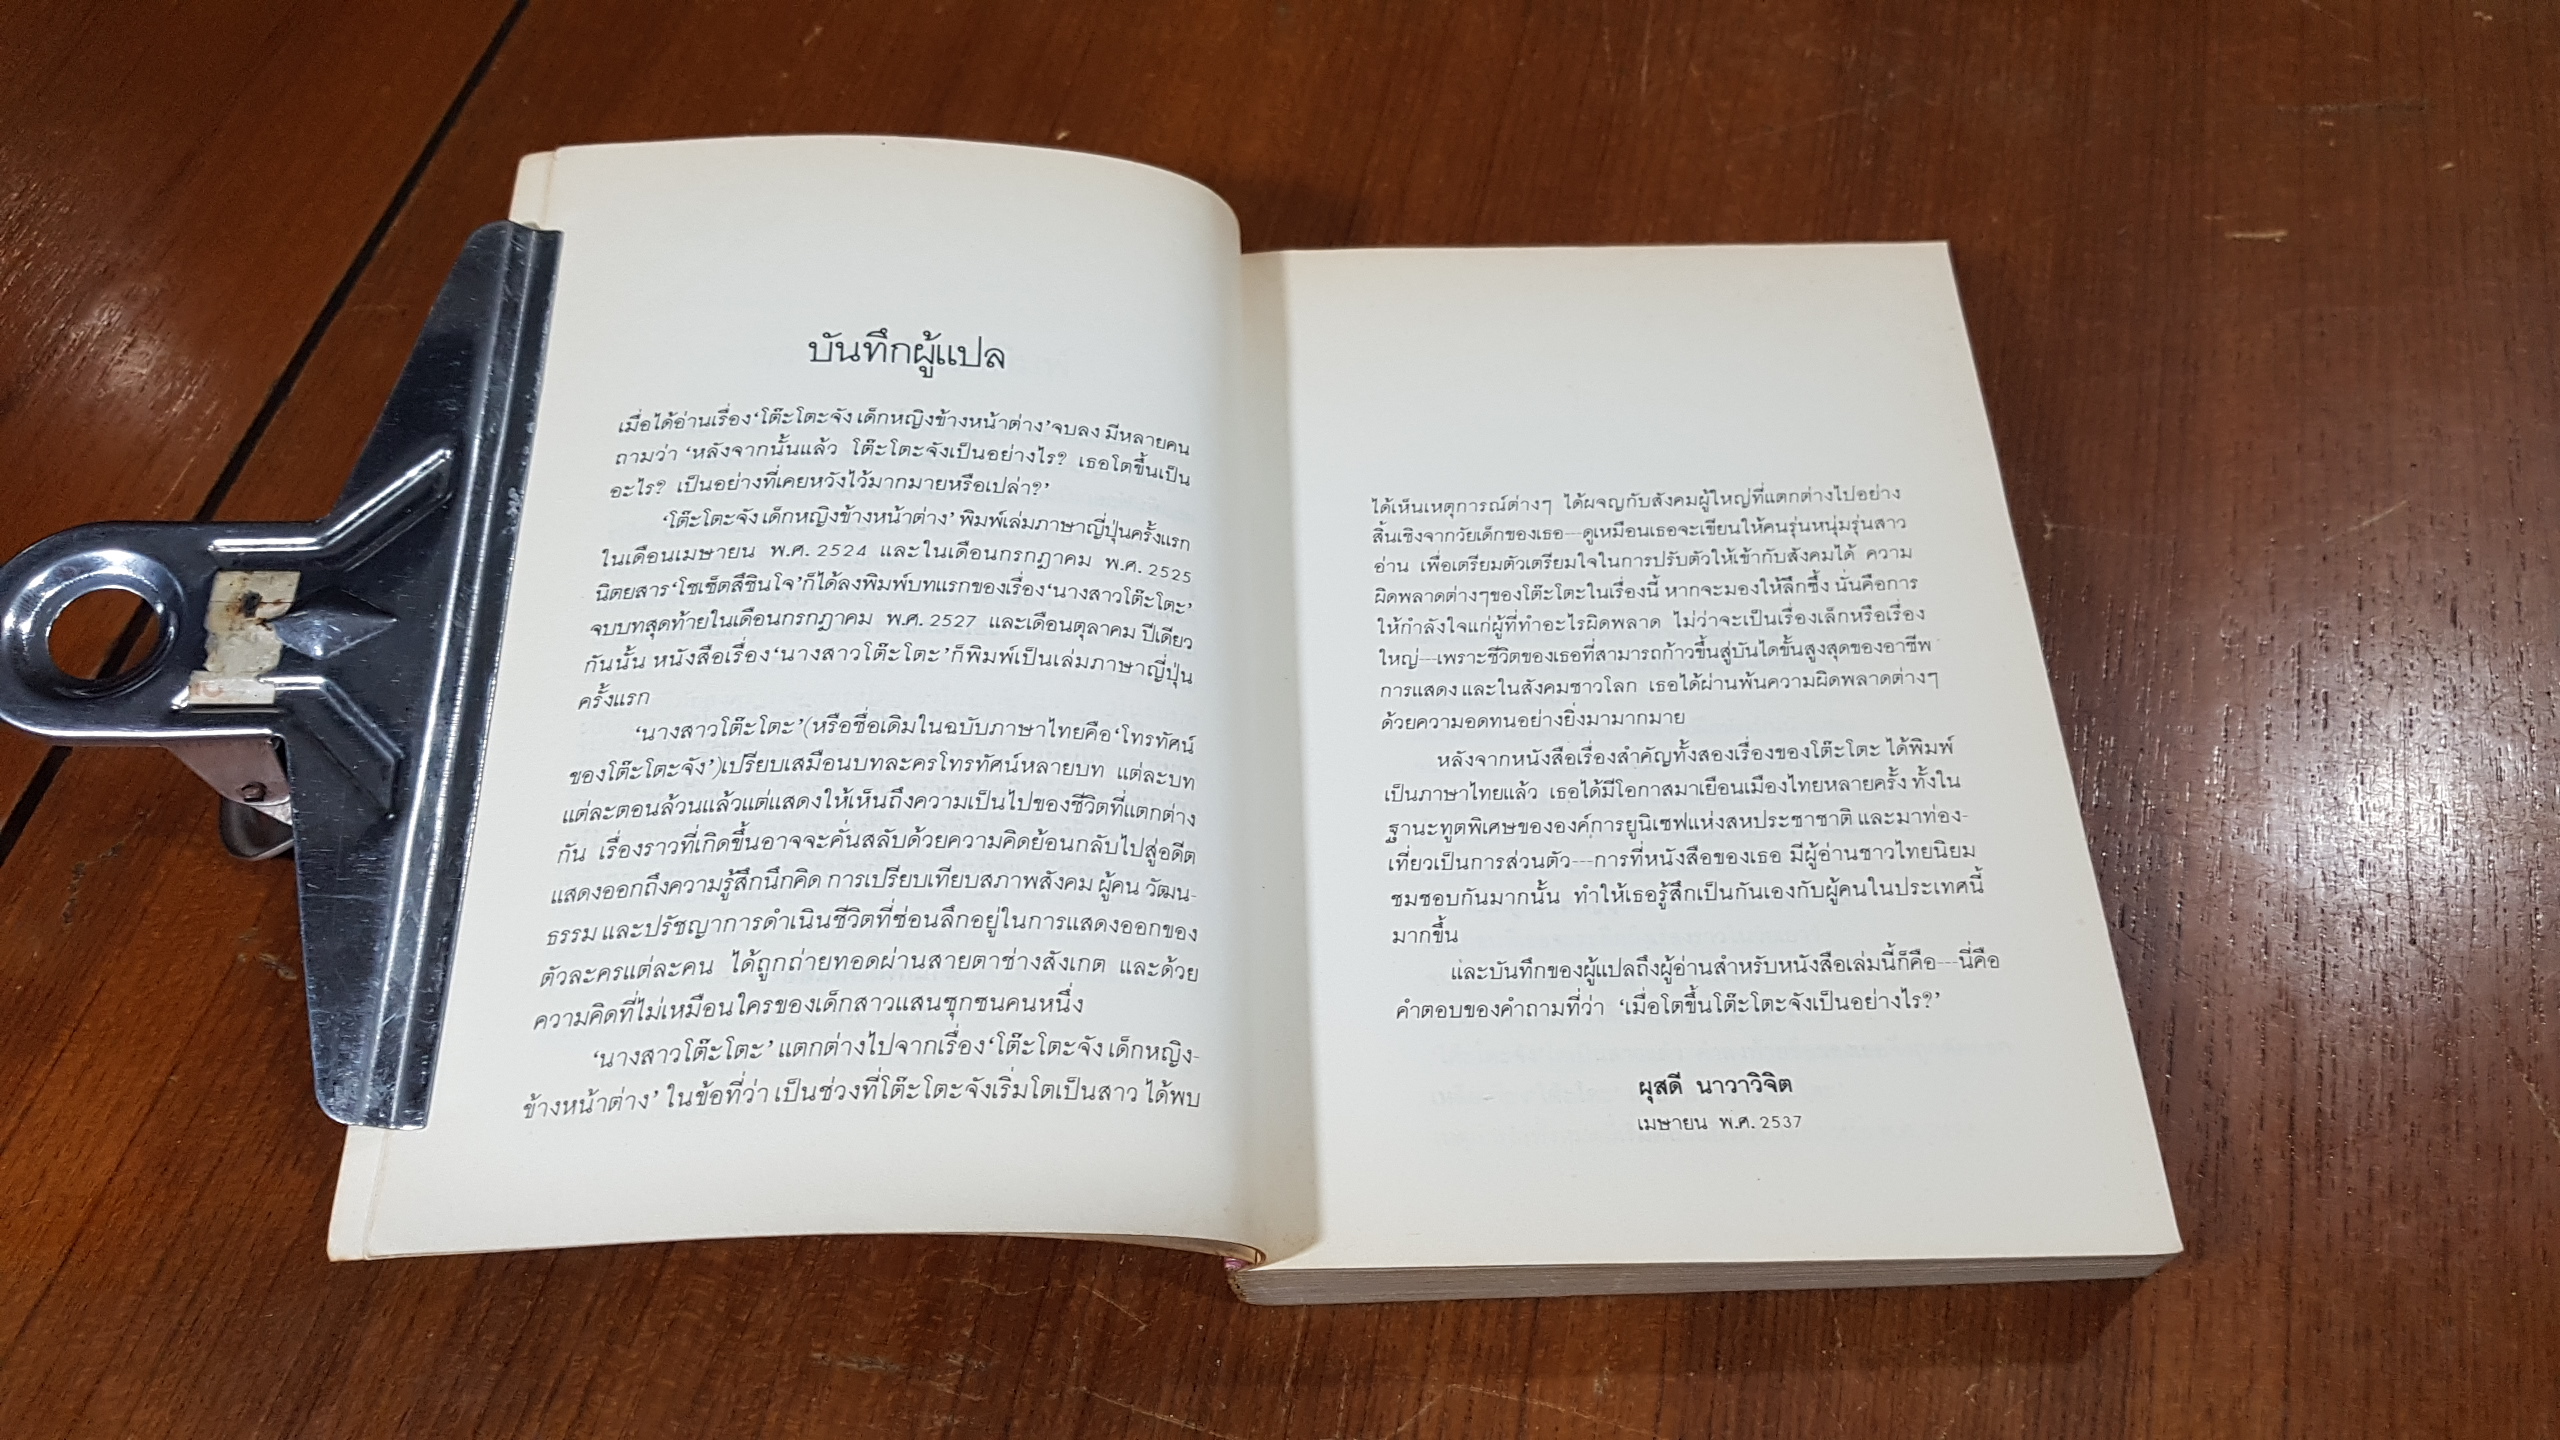 บันทึกผู้แปล
เมื่อได้อ่านเรื่อง‘โต๊ะโตะจัง เด็กหญิงข้างหน้าต่าง’จบลง มีหลายคน
ถามว่า ‘หลังจากนั้นแล้ว โต๊ะโตะจังเป็นอย่างไร? เธอโตขึ้นเป็น
อะไร? เป็นอย่างที่เคยหวังไว้มากมายหรือเปล่า?’
‘โต๊ะโตะจัง เด็กหญิงข้างหน้าต่าง’ พิมพ์เล่มภาษาญี่ปุ่นครั้งแรก
ในเดือนเมษายน พ.ศ. 2524 และในเดือนกรกฎาคม พ.ศ. 2525
นิตยสาร‘โชเซ็ตสึชินโจ’ก็ได้ลงพิมพ์บทแรกของเรื่อง‘นางสาวโต๊ะโตะ’
จบบทสุดท้ายในเดือนกรกฎาคม พ.ศ. 2527 และเดือนตุลาคม ปีเดียว
กันนั้น หนังสือเรื่อง‘นางสาวโต๊ะโตะ’ก็พิมพ์เป็นเล่มภาษาญี่ปุ่น
ครั้งแรก
‘นางสาวโต๊ะโตะ’(หรือชื่อเดิมในฉบับภาษาไทยคือ‘โทรทัศน์
ของโต๊ะโตะจัง’)เปรียบเสมือนบทละครโทรทัศน์หลายบท แต่ละบท
แต่ละตอนล้วนแล้วแต่แสดงให้เห็นถึงความเป็นไปของชีวิตที่แตกต่าง
กัน เรื่องราวที่เกิดขึ้นอาจจะคั่นสลับด้วยความคิดย้อนกลับไปสู่อดีต
แสดงออกถึงความรู้สึกนึกคิด การเปรียบเทียบสภาพสังคม ผู้คน วัฒน-
ธรรม และปรัชญาการดำเนินชีวิตที่ซ่อนลึกอยู่ในการแสดงออกของ
ตัวละครแต่ละคน ได้ถูกถ่ายทอดผ่านสายตาช่างสังเกต และด้วย
ความคิดที่ไม่เหมือนใครของเด็กสาวแสนซุกซนคนหนึ่ง
‘นางสาวโต๊ะโตะ’ แตกต่างไปจากเรื่อง‘โต๊ะโตะจัง เด็กหญิง-
ข้างหน้าต่าง’ ในข้อที่ว่า เป็นช่วงที่โต๊ะโตะจังเริ่มโตเป็นสาว ได้พบ
ได้เห็นเหตุการณ์ต่างๆ ได้ผจญกับสังคมผู้ใหญ่ที่แตกต่างไปอย่าง
สิ้นเชิงจากวัยเด็กของเธอ---ดูเหมือนเธอจะเขียนให้คนรุ่นหนุ่มรุ่นสาว
อ่าน เพื่อเตรียมตัวเตรียมใจในการปรับตัวให้เข้ากับสังคมได้ ความ
ผิดพลาดต่างๆของโต๊ะโตะในเรื่องนี้ หากจะมองให้ลึกซึ้ง นั่นคือการ
ให้กำลังใจแก่ผู้ที่ทำอะไรผิดพลาด ไม่ว่าจะเป็นเรื่องเล็กหรือเรื่อง
ใหญ่---เพราะชีวิตของเธอที่สามารถก้าวขึ้นสู่บันไดขั้นสูงสุดของอาชีพ
การแสดง และในสังคมชาวโลก เธอได้ผ่านพ้นความผิดพลาดต่างๆ
ด้วยความอดทนอย่างยิ่งมามากมาย
หลังจากหนังสือเรื่องสำคัญทั้งสองเรื่องของโต๊ะโตะ ได้พิมพ์
เป็นภาษาไทยแล้ว เธอได้มีโอกาสมาเยือนเมืองไทยหลายครั้ง ทั้งใน
ฐานะทูตพิเศษขององค์การยูนิเซฟแห่งสหประชาชาติ และมาท่อง-
เที่ยวเป็นการส่วนตัว---การที่หนังสือของเธอ มีผู้อ่านชาวไทยนิยม
ชมชอบกันมากนั้น ทำให้เธอรู้สึกเป็นกันเองกับผู้คนในประเทศนี้
มากขึ้น
และบันทึกของผู้แปลถึงผู้อ่านสำหรับหนังสือเล่มนี้ก็คือ---นี่คือ
คำตอบของคำถามที่ว่า ‘เมื่อโตขึ้นโต๊ะโตะจังเป็นอย่างไร?’
ผุสดี นาวาวิจิต
เมษายน พ.ศ. 2537